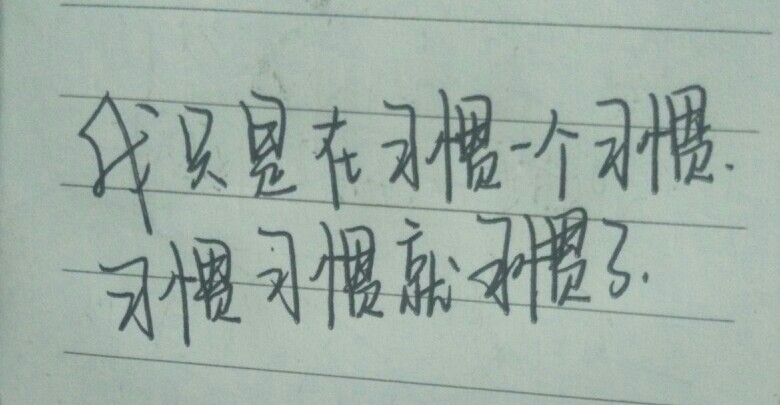 我只是在习惯一个习惯.
习惯习惯就习惯了.